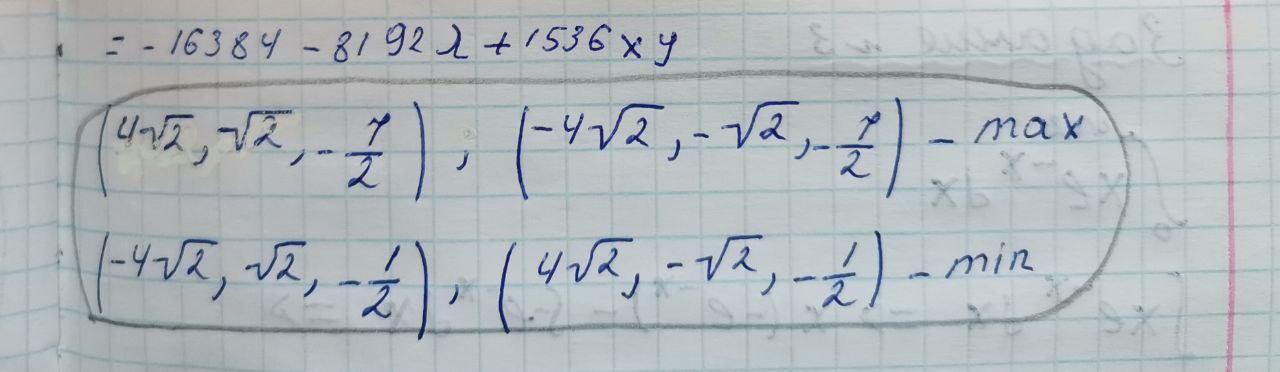 = -16384 - 8192λ + 1536xy
(4√2, √2, -7/2), (-4√2, -√2, -7/2) - max
(-4√2, √2, -1/2), (4√2, -√2, -1/2) - min